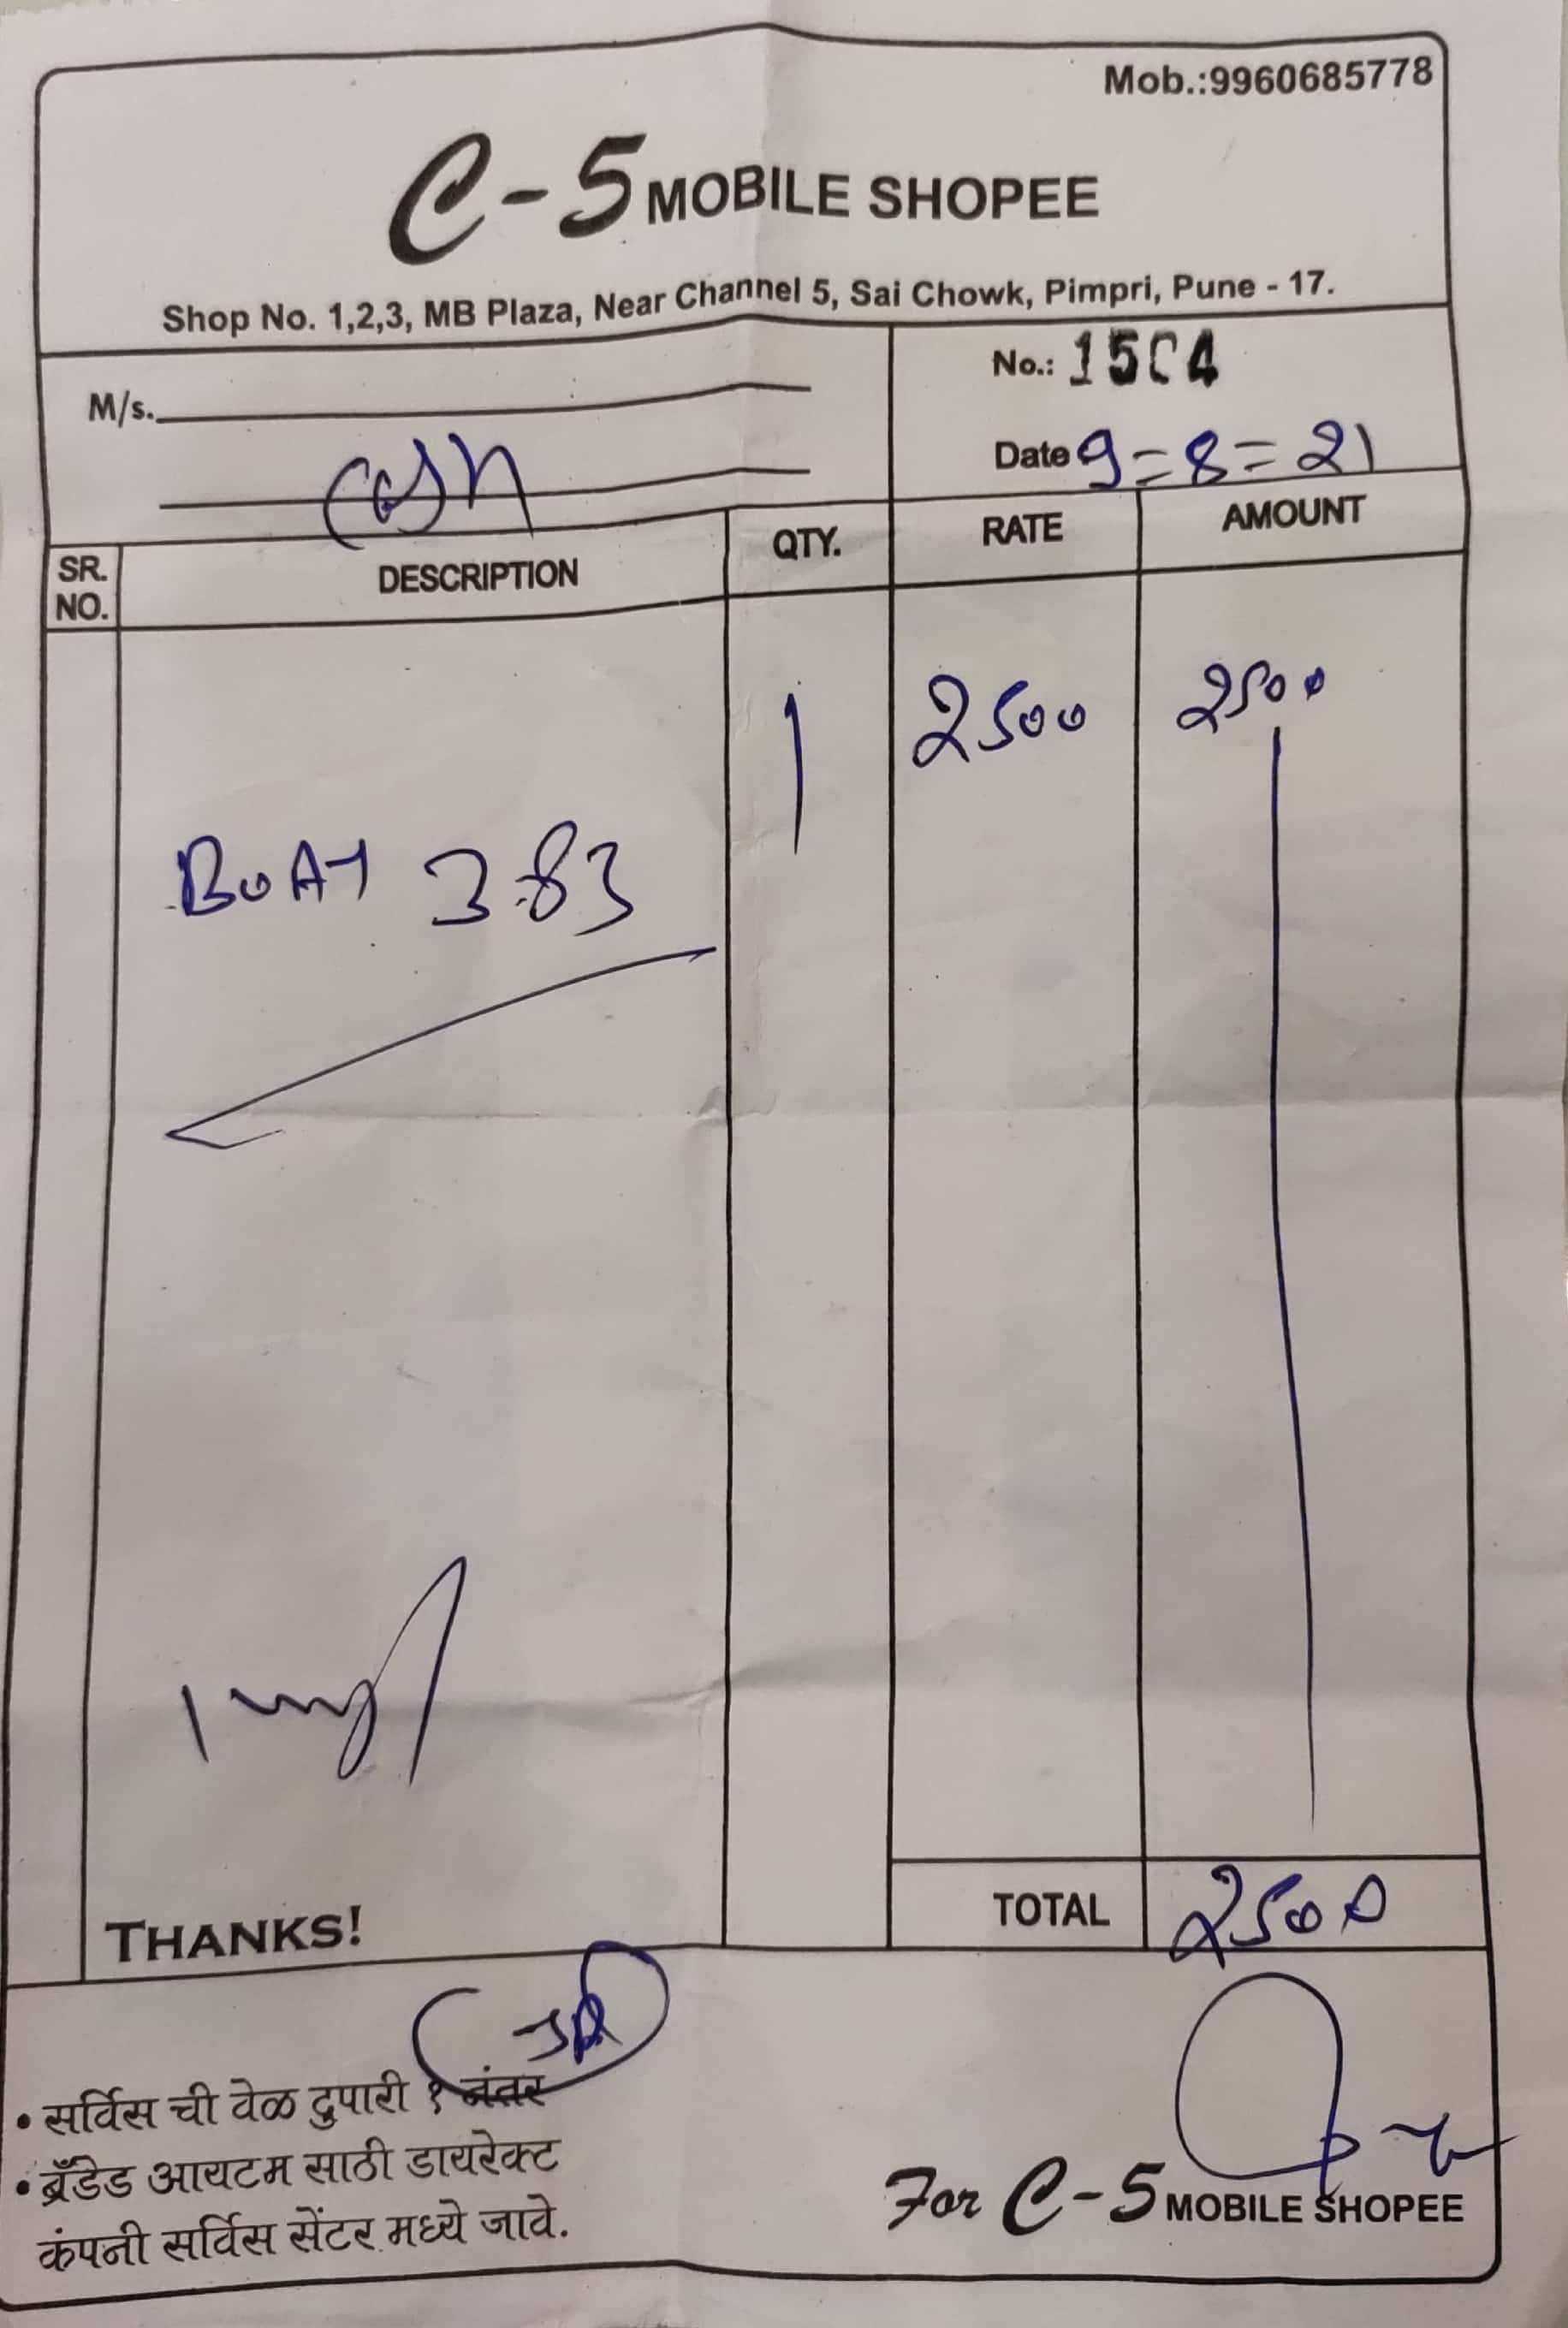 Mob.:9960685778
C-5 MOBILE SHOPEE
Shop No. 1,2,3, MB Plaza, Near Channel 5, Sai Chowk, Pimpri, Pune - 17.
M/s.
No.: 1504
cash
Date 9=8=21
SR. NO. DESCRIPTION QTY. RATE AMOUNT
1 2500 2500
BOAT 383
THANKS!
TOTAL 2500
• सर्विस ची वेळ दुपारी १ नंतर
• ब्रँडेड आयटम साठी डायरेक्ट
कंपनी सर्विस सेंटर मध्ये जावे.
For C-5 MOBILE SHOPEE